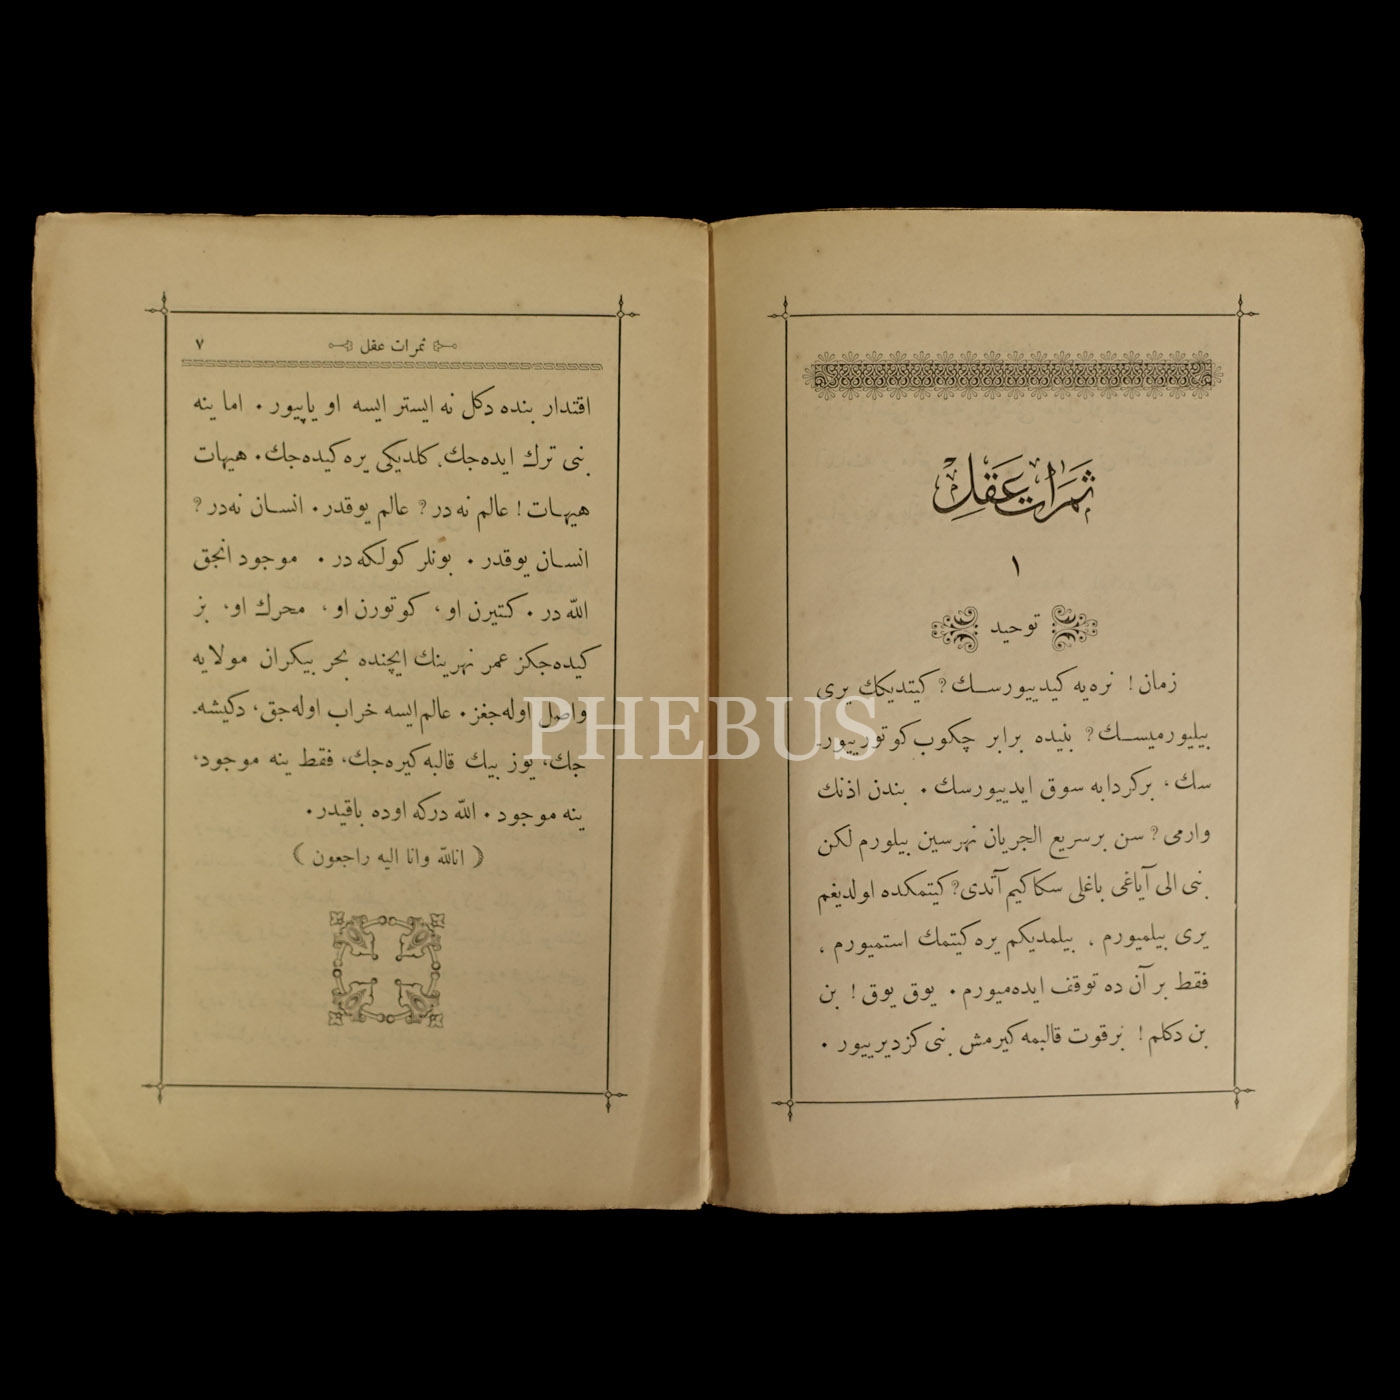 ثمرات عقل
١
توحيد
زمان! نره‌يه كيدييورســك؟ كيتديكك يرى
بيليورميســك؟ بنيده برابر چكوب كوتورييور-
سك، برگردابه سوق ايدييورسك. بندن اذنك
وارمى؟ سن برسريع الجريان نهرسين بيلورم لكن
بنى الى آياغى باغلى سكا كيم آتدى؟ كيتمكده اولديغم
يرى بيلميورم، بيلمديكم يره كيتمك استميورم،
فقط بر آن ده توقف ايده‌ميورم. يوق يوق! بن
بن دكلم! برقوت قالبمه كيرمش بنى كزديرييور.
ثمرات عقل ٧
اقتدار بنده دكل نه ايستر ايسه او ياپييور. اما ينه
بنى ترك ايده‌جك، كلديكى يره كيده‌جك. هيهات
هيهـات! عالم نه‌در؟ عالم يوقدر. انســان نه‌در؟
انســان يوقدر. بونلر كولكه‌در. موجود انجق
الله‌در. كتيرن او، كوتورن او، محرك او، بز
كيده‌جكز عمر نهرينك ايچنده بحر بيكران مولايه
واصل اوله‌جغز. عالم ايسه خراب اوله‌جق، دكيشه-
جك، يوز بيك قالبه كيره‌جك، فقط ينه موجود،
ينه موجود. الله دركه اوده باقيدر.
(انالله وانا اليه راجعون)
PHEBUS